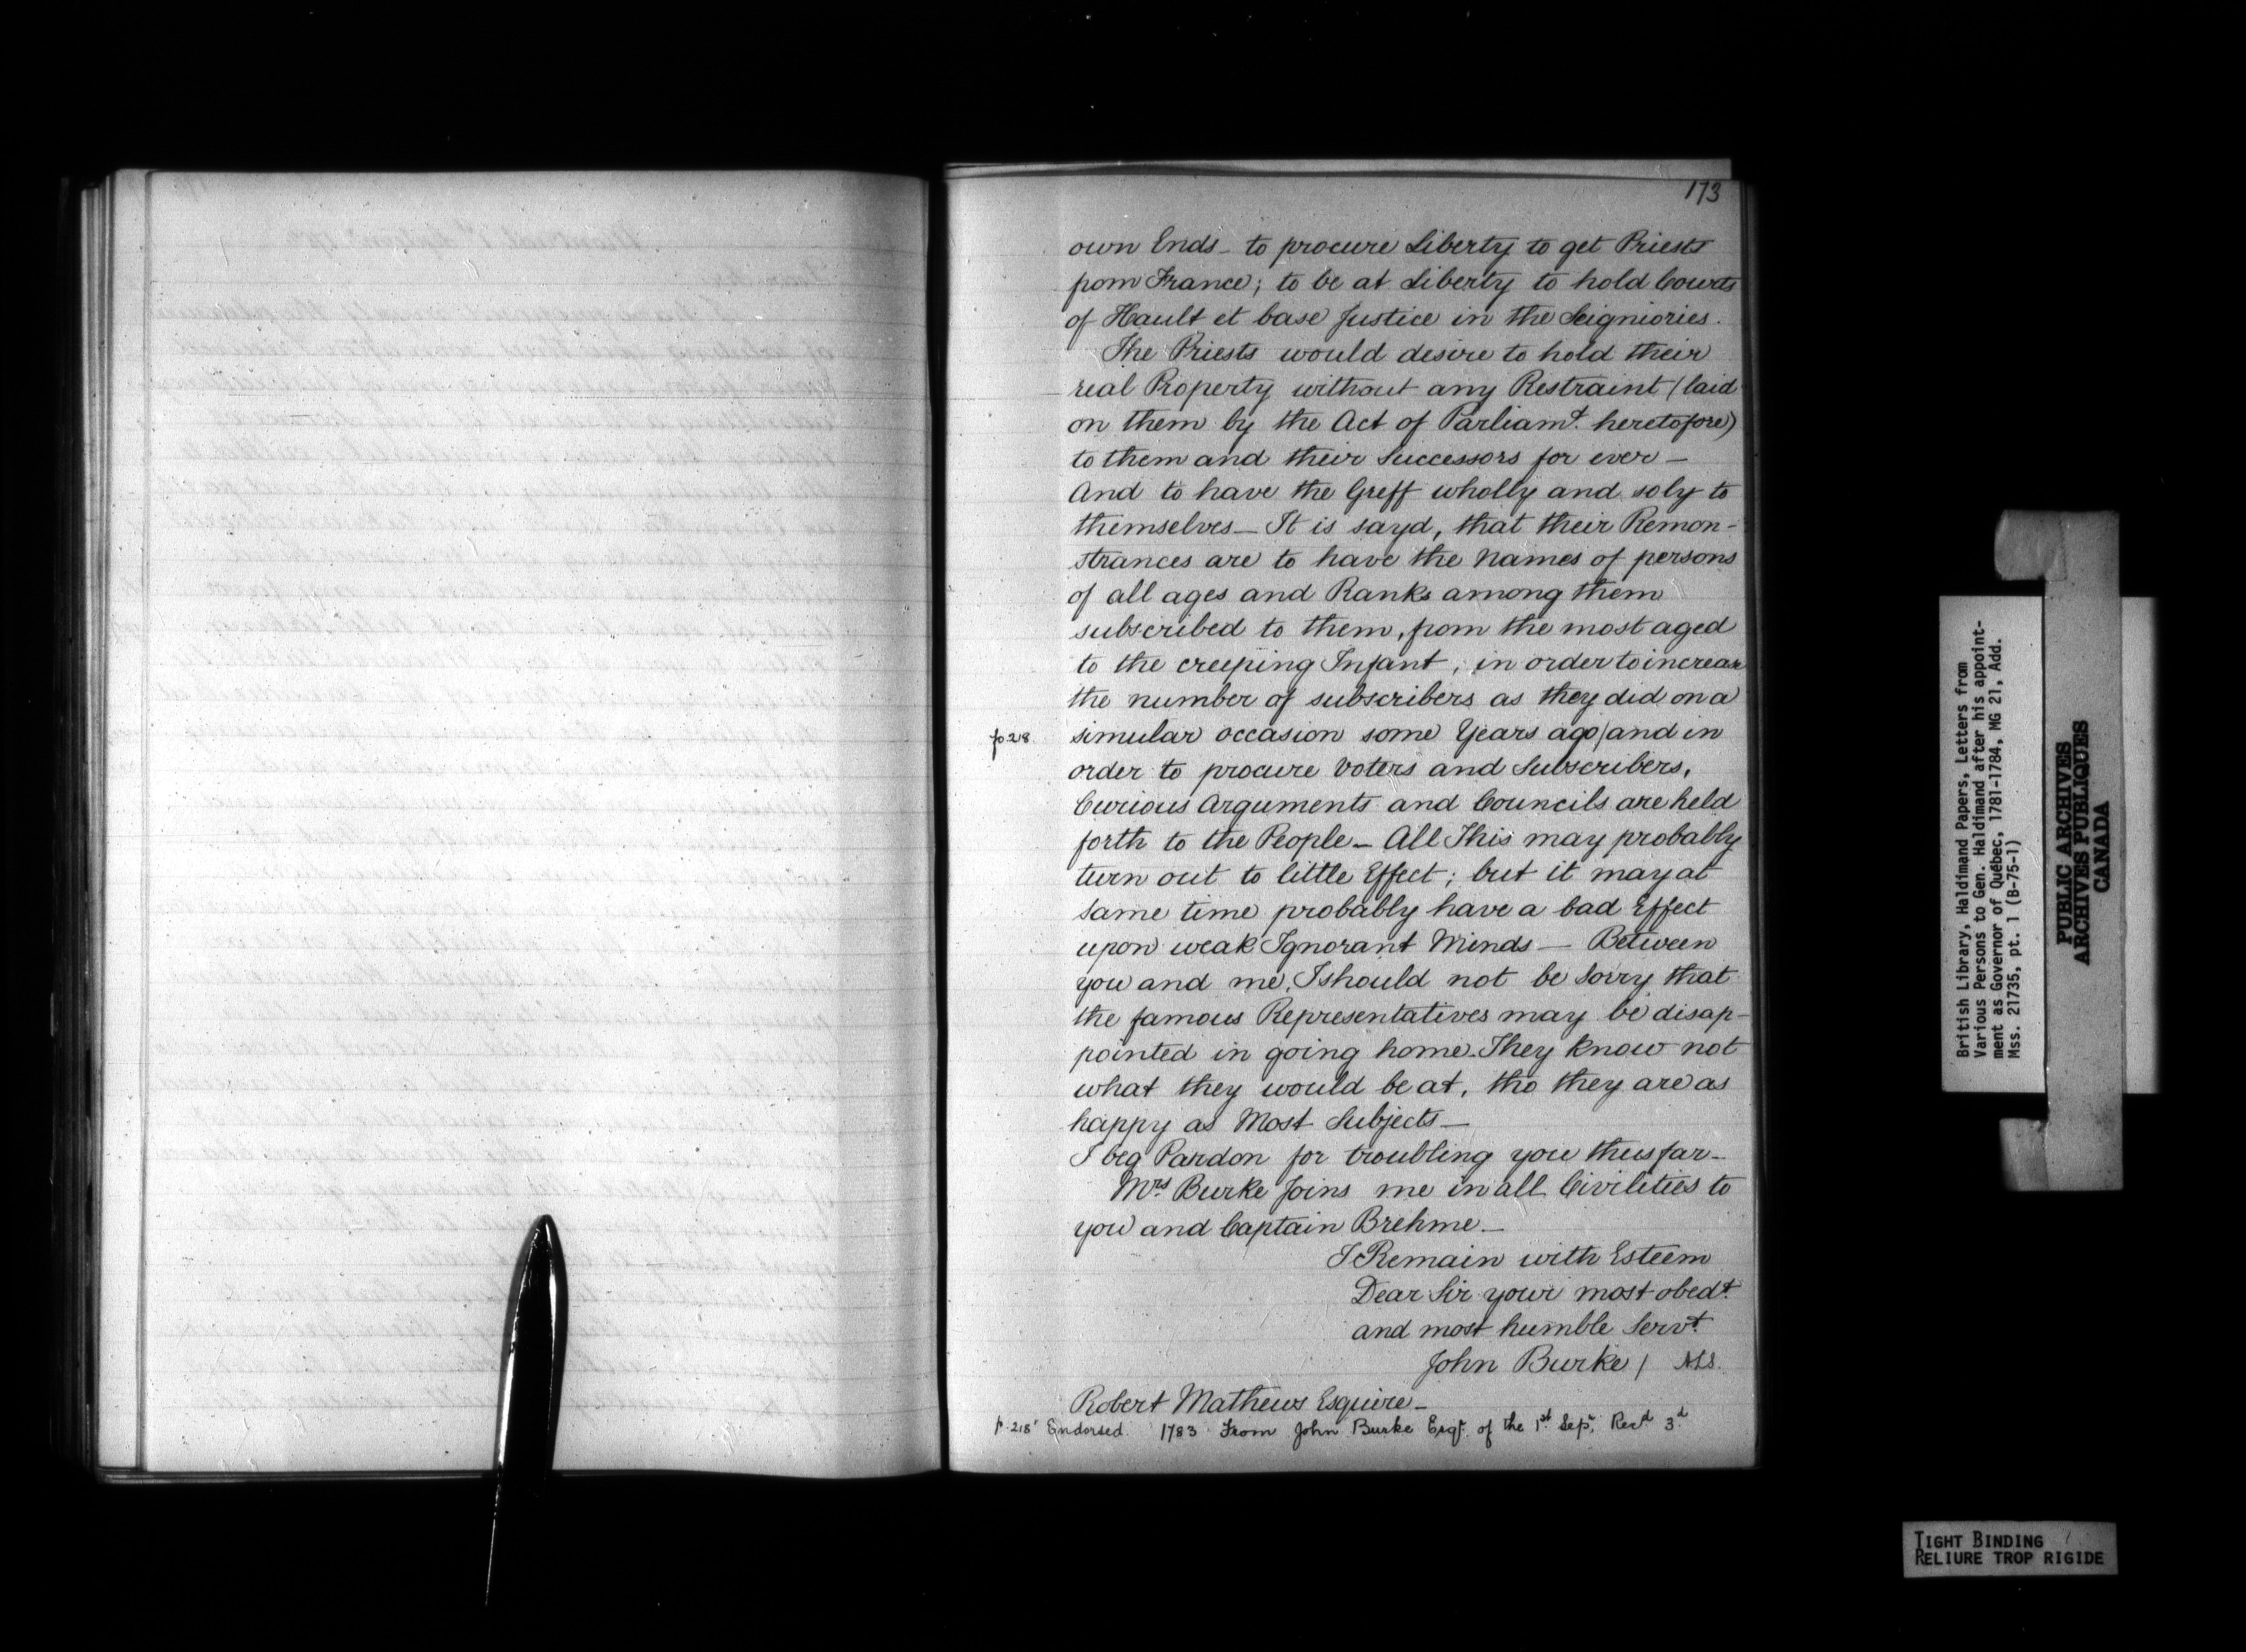 173
own Ends - to procure Liberty to get Priests
from France; to be at Liberty to hold Courts
of Hault et base Justice in the Seigniories.
The Priests would desire to hold their
real Property without any Restraint (laid
on them by the Act of Parliamt. heretofore)
to them and their Successors for ever —
And to have the Greff wholly and soly to
themselves — It is sayd, that their Remon-
strances are to have the Names of persons
of all ages and Ranks among them
subscribed to them, from the most aged
to the creeping Infant, in order to increase
the number of subscribers as they did on a
p. 218 simular occasion some Years ago / and in
order to procure Voters and Subscribers,
Curious Arguments and Councils are held
forth to the People — All This may probably
turn out to little Effect; but it may at
same time probably have a bad Effect
upon weak Ignorant Minds — Between
you and me, I should not be Sorry that
the famous Representatives may be disap-
pointed in going home. They know not
what they would be at, tho they are as
happy as Most Subjects —
I beg Pardon for troubling you thus far —
Mrs Burke Joins me in all Civilities to
you and Captain Brehme —
I Remain with Esteem
Dear Sir your most obedt.
and most humble Servt.
John Burke / ALS.
Robert Mathews Esquire —
p. 218' Endorsed. 1783 From John Burke Esqr. of the 1st Sepr. Recd 3d
British Library, Haldimand Papers, Letters from
Various Persons to Gen. Haldimand after his appoint-
ment as Governor of Québec, 1781-1784, MG 21, Add.
Mss. 21735, pt. 1 (B-75-1)
PUBLIC ARCHIVES
ARCHIVES PUBLIQUES
CANADA
TIGHT BINDING
RELIURE TROP RIGIDE